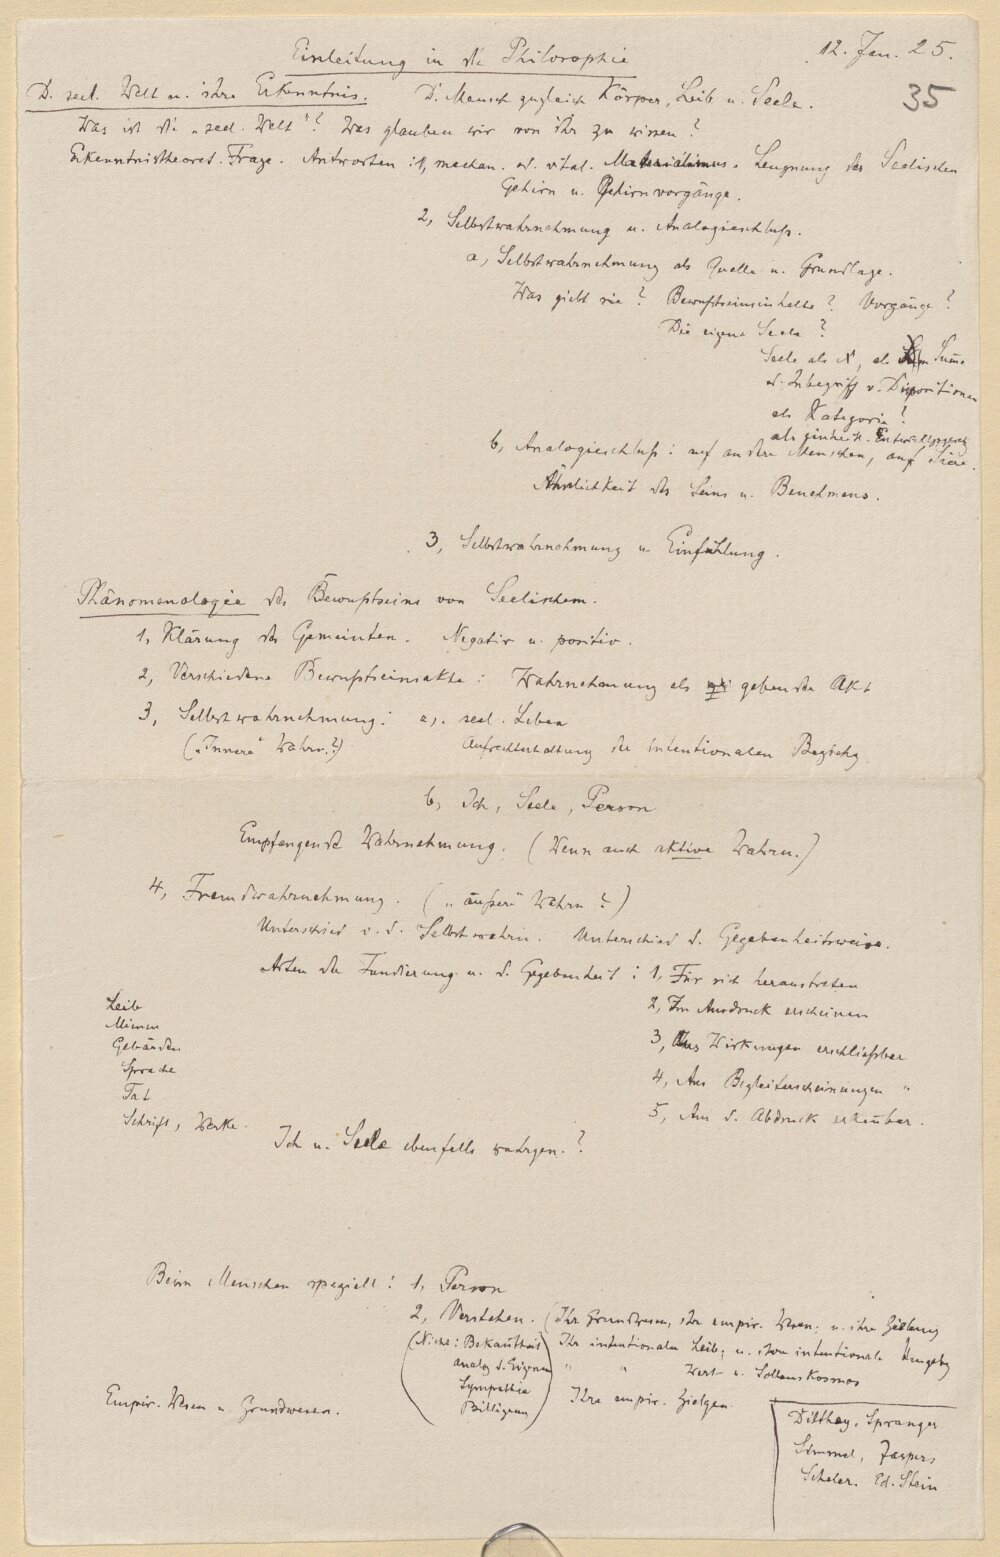 Einleitung in die Philosophie 12. Jan. 25.
35
D. seel. Welt u. ihre Erkenntnis. D. Mensch zugleich Körper, Leib u. Seele.
Was ist die „seel. Welt"? Was glauben wir von ihr zu wissen?
Erkenntnistheoret. Frage. Antworten: 1, mechan. od. vital. Materialismus. Leugnung des Seelischen
Gehirn u. Gehirnvorgänge.
2, Selbstwahrnehmung u. Analogieschluß.
a, Selbstwahrnehmung als Quelle u. Grundlage.
Was giebt sie? Bewußtseinsinhalte? Vorgänge?
Die eigene Seele?
Seele als X, als Summe
od. Inbegriff v. Dispositionen
als Kategorie?
als einheitl. Entwicklgsgesetz
b, Analogieschluß: auf andere Menschen, auf Tiere.
Ähnlichkeit des Seins u. Benehmens.
3, Selbstwahrnehmung u. Einfühlung.
Phänomenologie des Bewußtseins von Seelischem.
1, Klärung des Gemeinten. Negativ u. positiv.
2, Verschiedene Bewußtseinsakte: Wahrnehmung als gebender Akt
3, Selbstwahrnehmung: a, seel. Leben
(„Innere" Wahrn.?) Aufrechterhaltung der intentionalen Beziehg.
b, Ich, Seele, Person
Empfangende Wahrnehmung. (Wenn auch aktive Wahrn.)
4, Fremdwahrnehmung. („äußere" Wahrn?)
Unterschied v. d. Selbstwahrn. Unterschied d. Gegebenheitsweise.
Arten der Fundierung u. d. Gegebenheit: 1, Für sich heraustreten
2, Im Ausdruck erscheinen
3, Aus Wirkungen erschließbar
4, Aus Begleiterscheinungen "
5, Am d. Abdruck erkennbar.
Leib
Mienen
Gebärden
Sprache
Tat
Schrift, Werke.
Ich u. Seele ebenfalls wahrgen.?
Beim Menschen speziell: 1, Person
2, Verstehen. (Ihr Grundwesen, ihr empir. Wesen; u. ihre Zielung
(Nicht: Bekanntheit) Ihr intentionaler Leib; u. ihre intentionale Umgebg
analog d. Eigenen " " Wert- u. Sollenskosmos
Sympathie
Billigen) Ihre empir. Zielgen.
Empir. Wesen u. Grundwesen.
Dilthey, Spranger
Simmel, Jaspers
Scheler. Ed. Stein